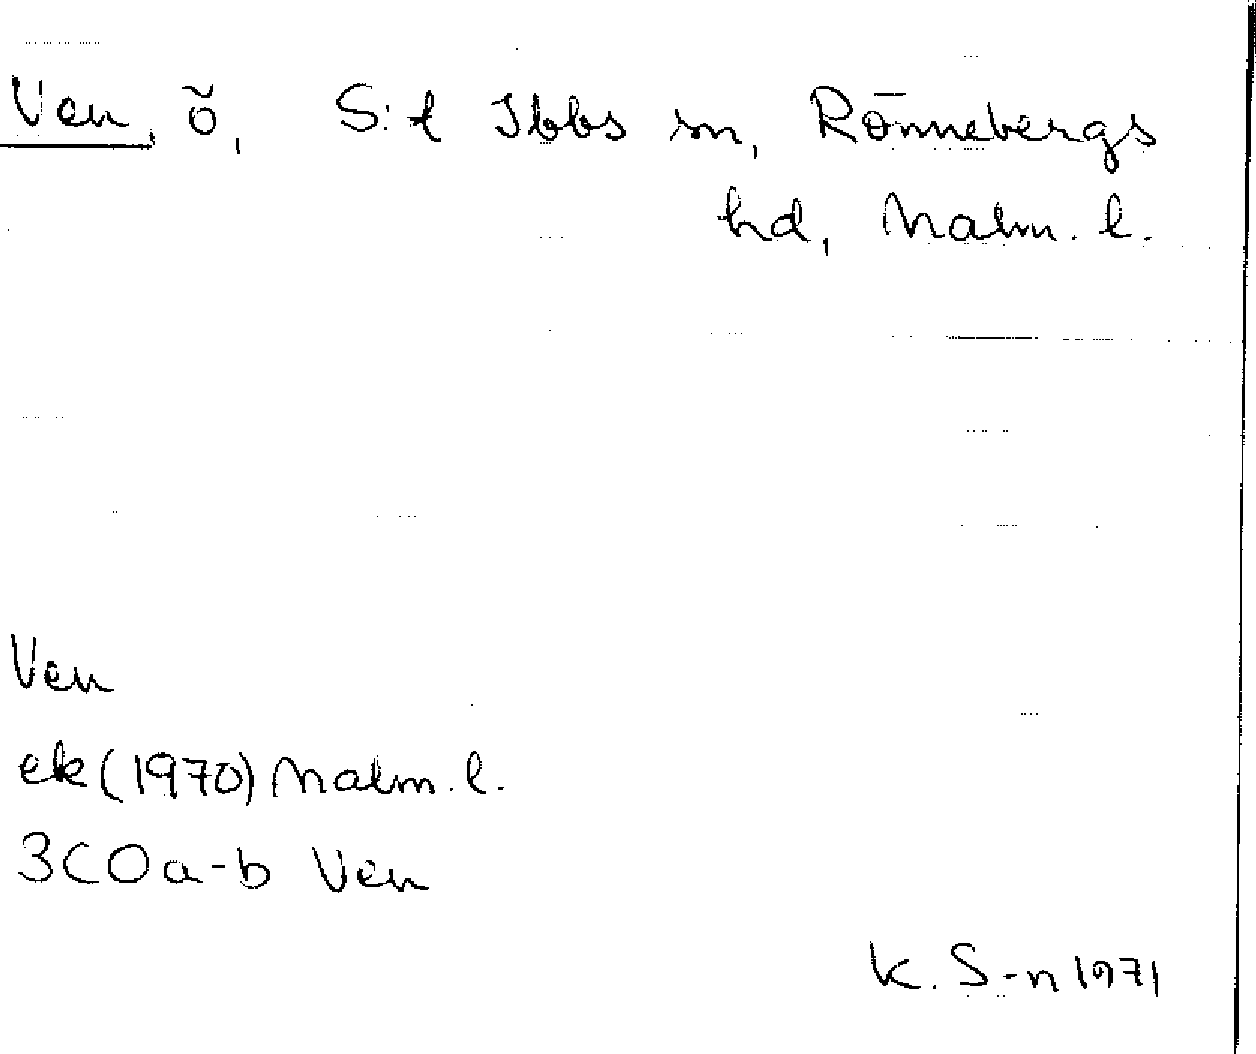 Ven, ö, S:t Ibbs sn, Rönnebergs
hd, Malm. l.
Ven
ek (1970) Malm. l.
3C0a-b Ven
K. S-n 1971